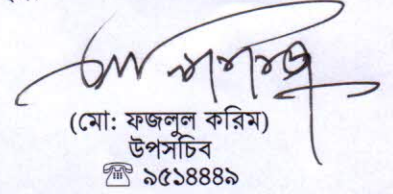 (মো: ফজলুল করিম)
উপসচিব
☎ ৯৫১৪৪৪৯